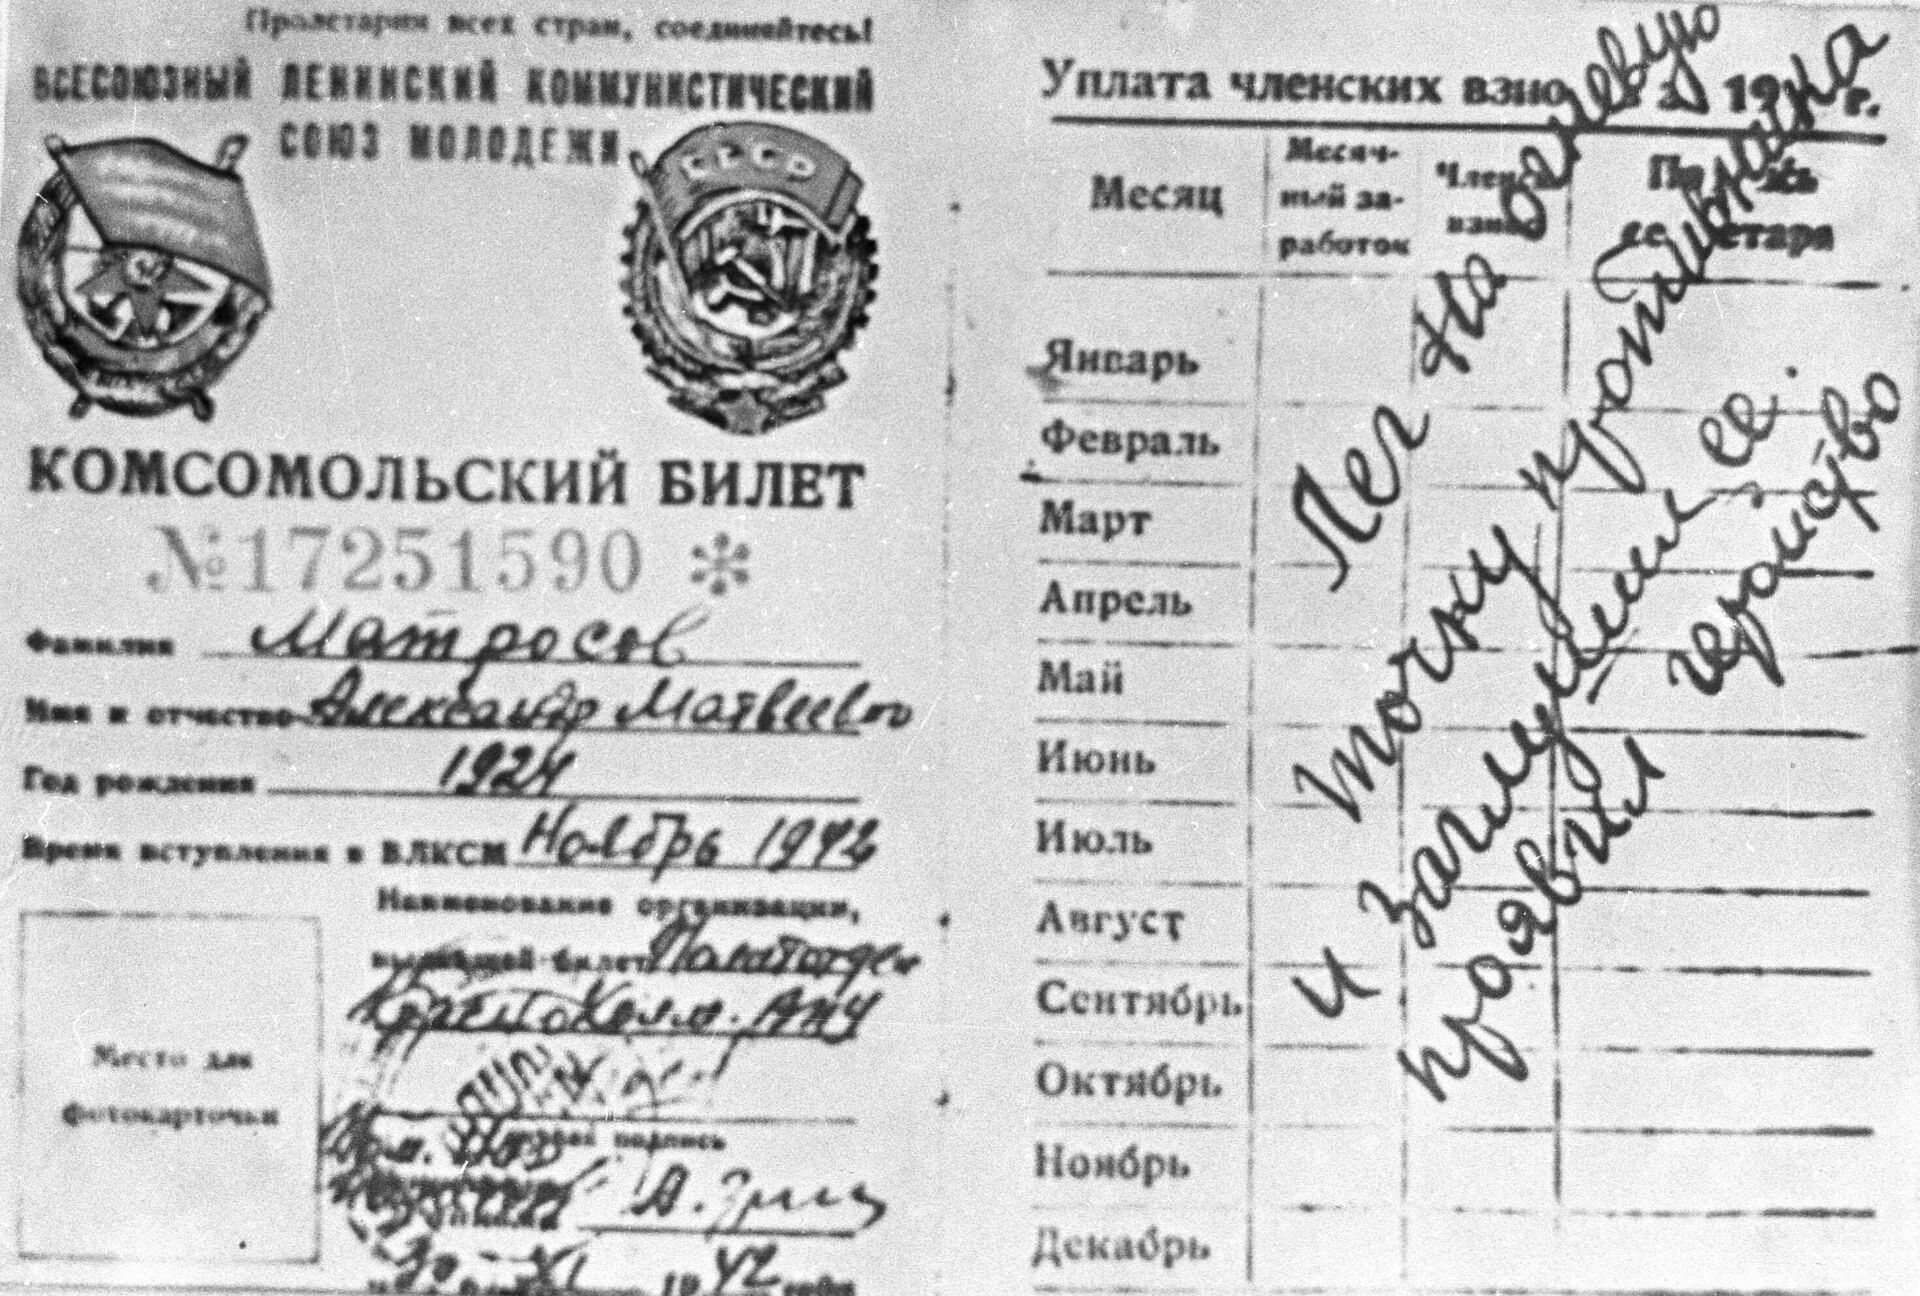 Пролетарии всех стран, соединяйтесь!
ВСЕСОЮЗНЫЙ ЛЕНИНСКИЙ КОММУНИСТИЧЕСКИЙ
СОЮЗ МОЛОДЕЖИ
СССР
КОМСОМОЛЬСКИЙ БИЛЕТ
№17251590 *
Фамилия Матросов
Имя и отчество Александр Матвеевич
Год рождения 1924
Время вступления в ВЛКСМ Ноябрь 1942
Наименование организации,
выдавшей билет
подпись
Место для
фотокарточки
30 XI 1942 года
Уплата членских взно за 19 г.
Месяц
Месяч-
ный за-
работок
Член
взно
По сь
се етаря
Январь
Февраль
Март
Апрель
Май
Июнь
Июль
Август
Сентябрь
Октябрь
Ноябрь
Декабрь
Лег на огневую
точку противника
и заглушил ее.
проявил геройство